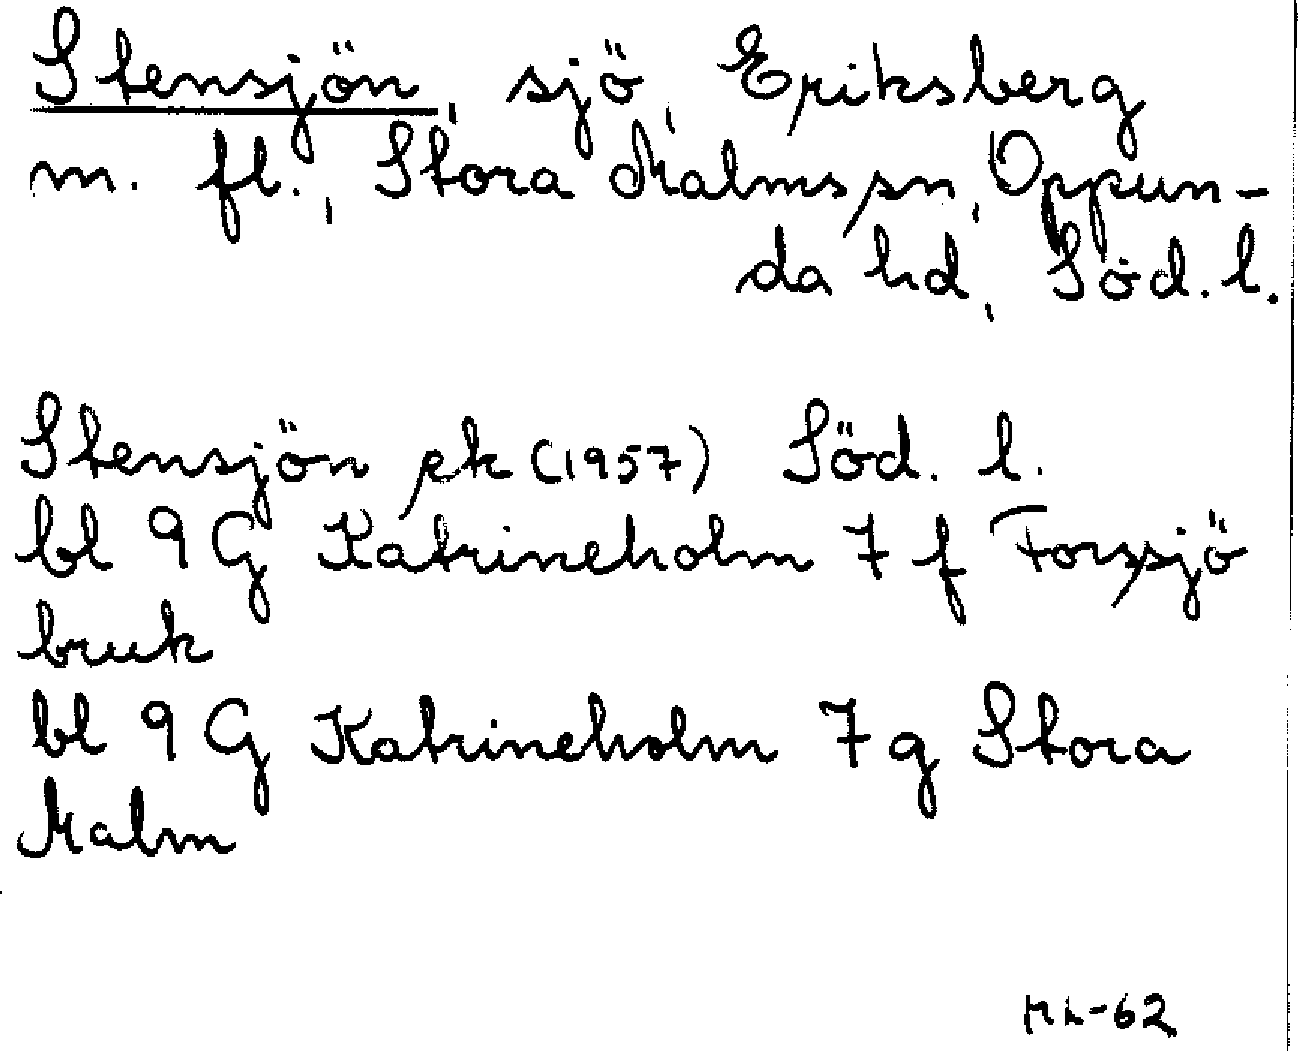 Stensjön, sjö, Eriksberg
m. fl., Stora Malms sn, Oppun-
da hd, Söd. l.
Stensjön ek (1957) Söd. l.
bl 9 G Katrineholm 7 f Forssjö
bruk
bl 9 G Katrineholm 7 g Stora
Malm
-62